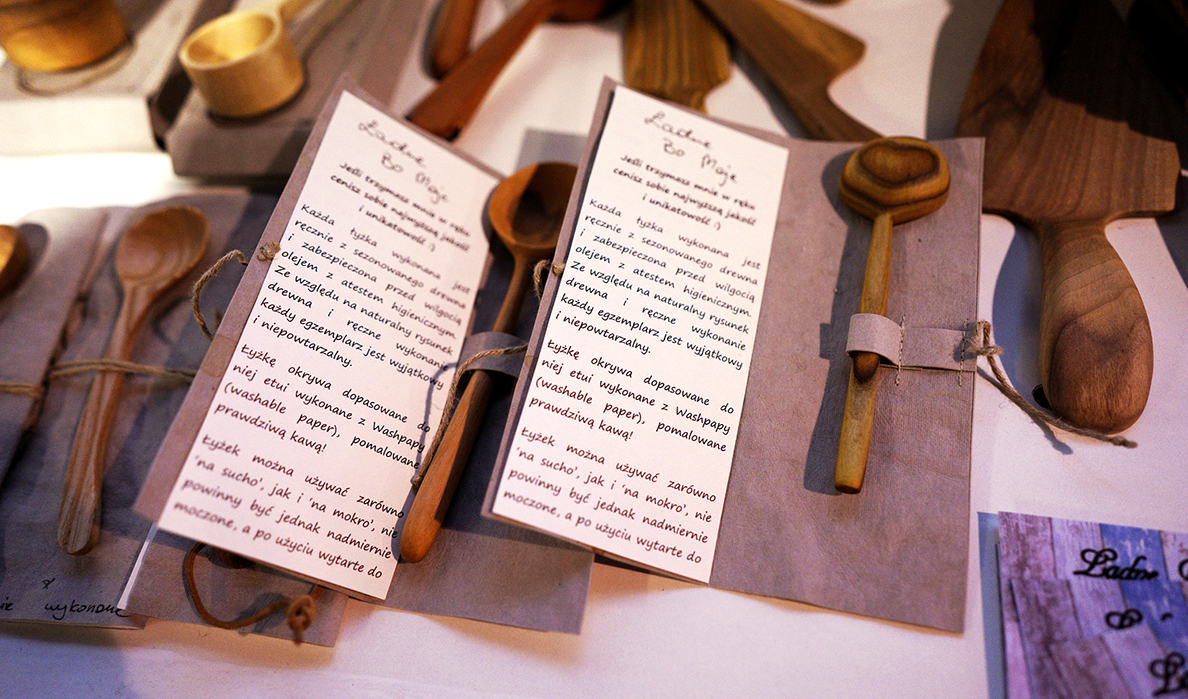 Ładne
Bo Moje
Jeśli trzymasz mnie w ręku
cenisz sobie najwyższą jakość
i unikatowość :)
Każda łyżka wykonana jest
ręcznie z sezonowanego drewna
i zabezpieczona przed wilgocią
olejem z atestem higienicznym.
Ze względu na naturalny rysunek
drewna i ręczne wykonanie
każdy egzemplarz jest wyjątkowy
i niepowtarzalny.
Łyżkę okrywa dopasowane do
niej etui wykonane z Washpapy
(washable paper), pomalowane
prawdziwą kawą!
Łyżek można używać zarówno
'na sucho', jak i 'na mokro', nie
powinny być jednak nadmiernie
moczone, a po użyciu wytarte do
Ładne
Bo Moje
Jeśli trzymasz mnie w ręku
cenisz sobie najwyższą jakość
i unikatowość :)
Każda łyżka wykonana jest
ręcznie z sezonowanego drewna
i zabezpieczona przed wilgocią
olejem z atestem higienicznym.
Ze względu na naturalny rysunek
drewna i ręczne wykonanie
każdy egzemplarz jest wyjątkowy
i niepowtarzalny.
Łyżkę okrywa dopasowane do
niej etui wykonane z Washpapy
(washable paper), pomalowane
prawdziwą kawą!
Łyżek można używać zarówno
'na sucho', jak i 'na mokro', nie
powinny być jednak nadmiernie
moczone, a po użyciu wytarte do
wykonane
Ładne